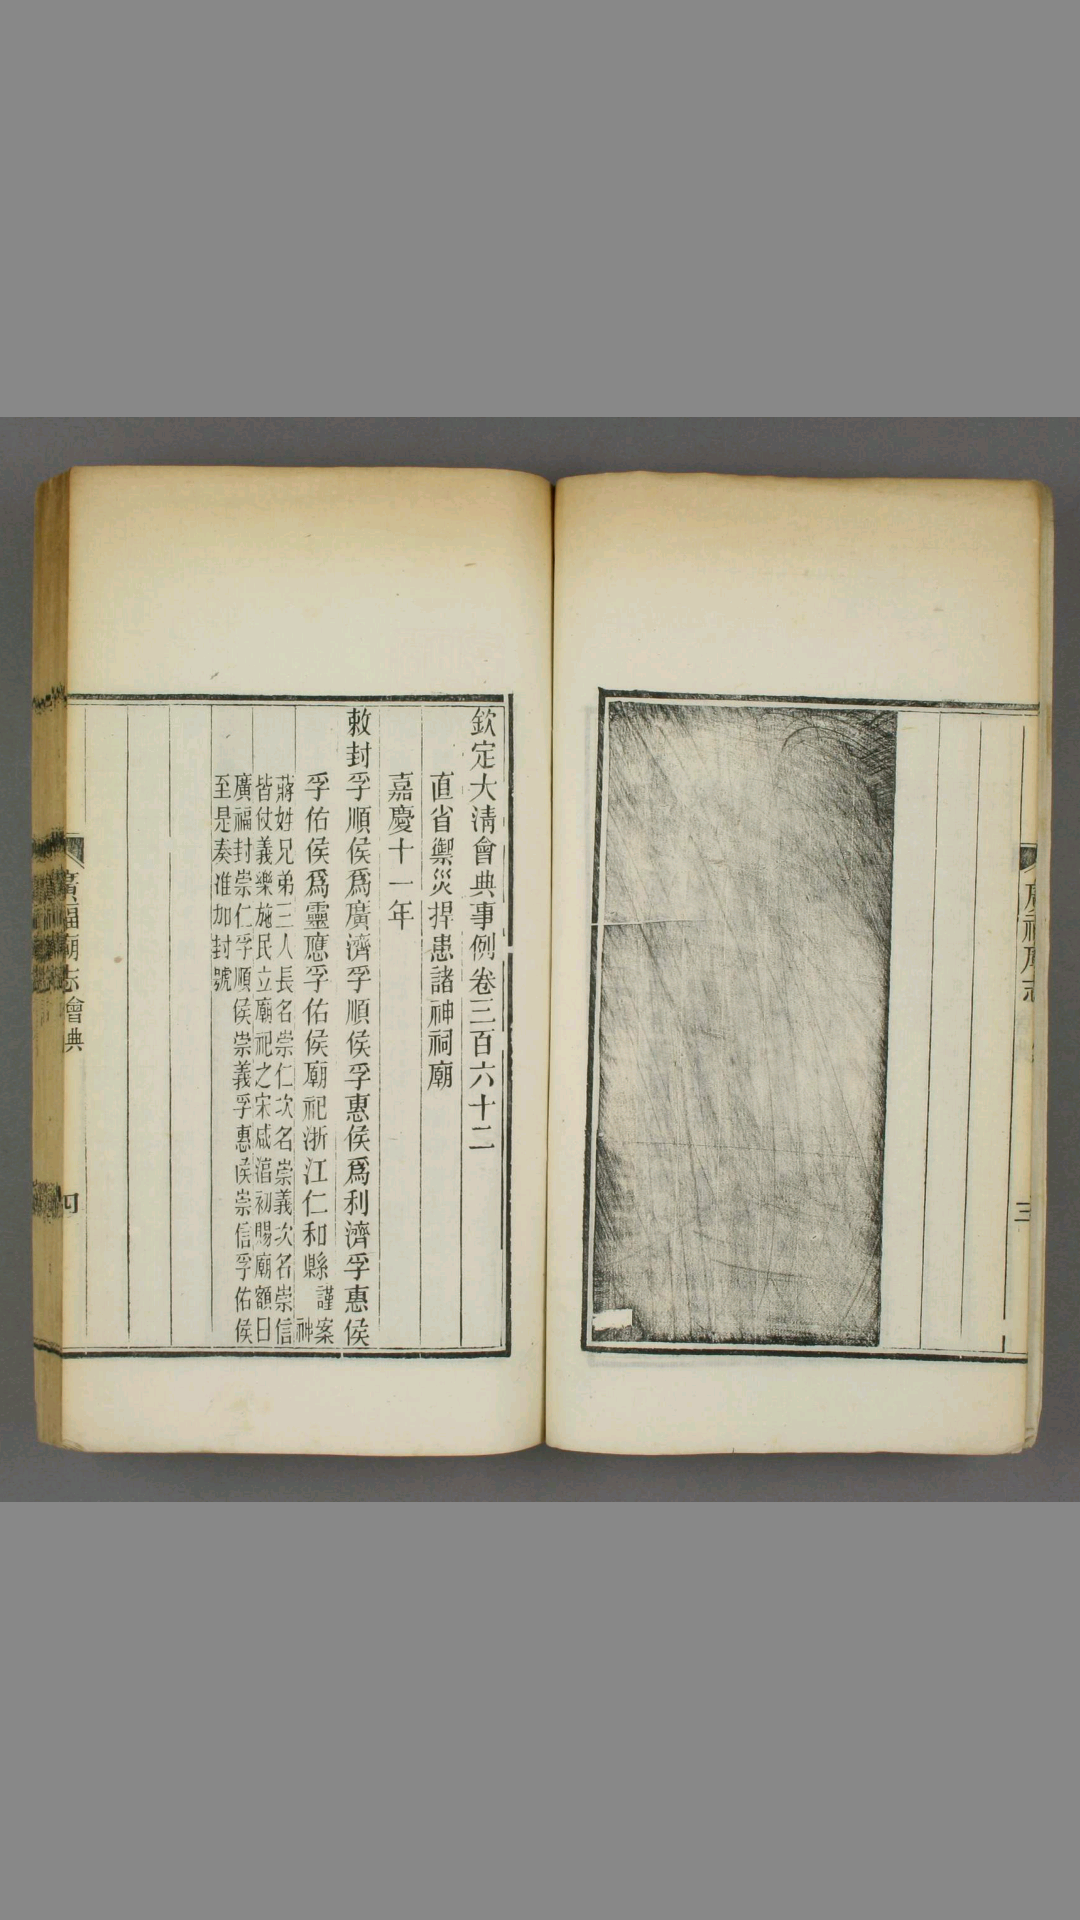 廣福廟志
三
欽定大淸會典事例卷三百六十二
直省禦災捍患諸神祠廟
嘉慶十一年
敕封孚順侯爲廣濟孚順侯孚惠侯爲利濟孚惠侯
孚佑侯爲靈應孚佑侯廟祀浙江仁和縣謹案神
蔣姓兄弟三人長名崇仁次名崇義次名崇信
皆仗義樂施民立廟祀之宋咸淳初賜廟額曰
廣福封崇仁孚順侯崇義孚惠侯崇信孚佑侯
至是奏准加封號
廣福廟志會典
四